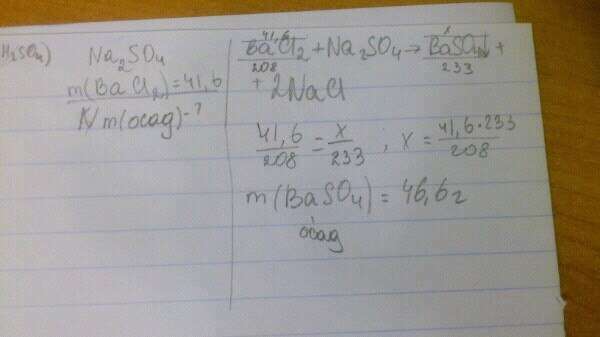 H₂SO₄)
Na₂SO₄
m(BaCl₂)=41,6
m(осад)-?
41,6 x
BaCl₂+Na₂SO₄→BaSO₄↓+
208 233
+2NaCl
41,6/208=x/233; x=41,6·233/208
m(BaSO₄)=46,6г
осад